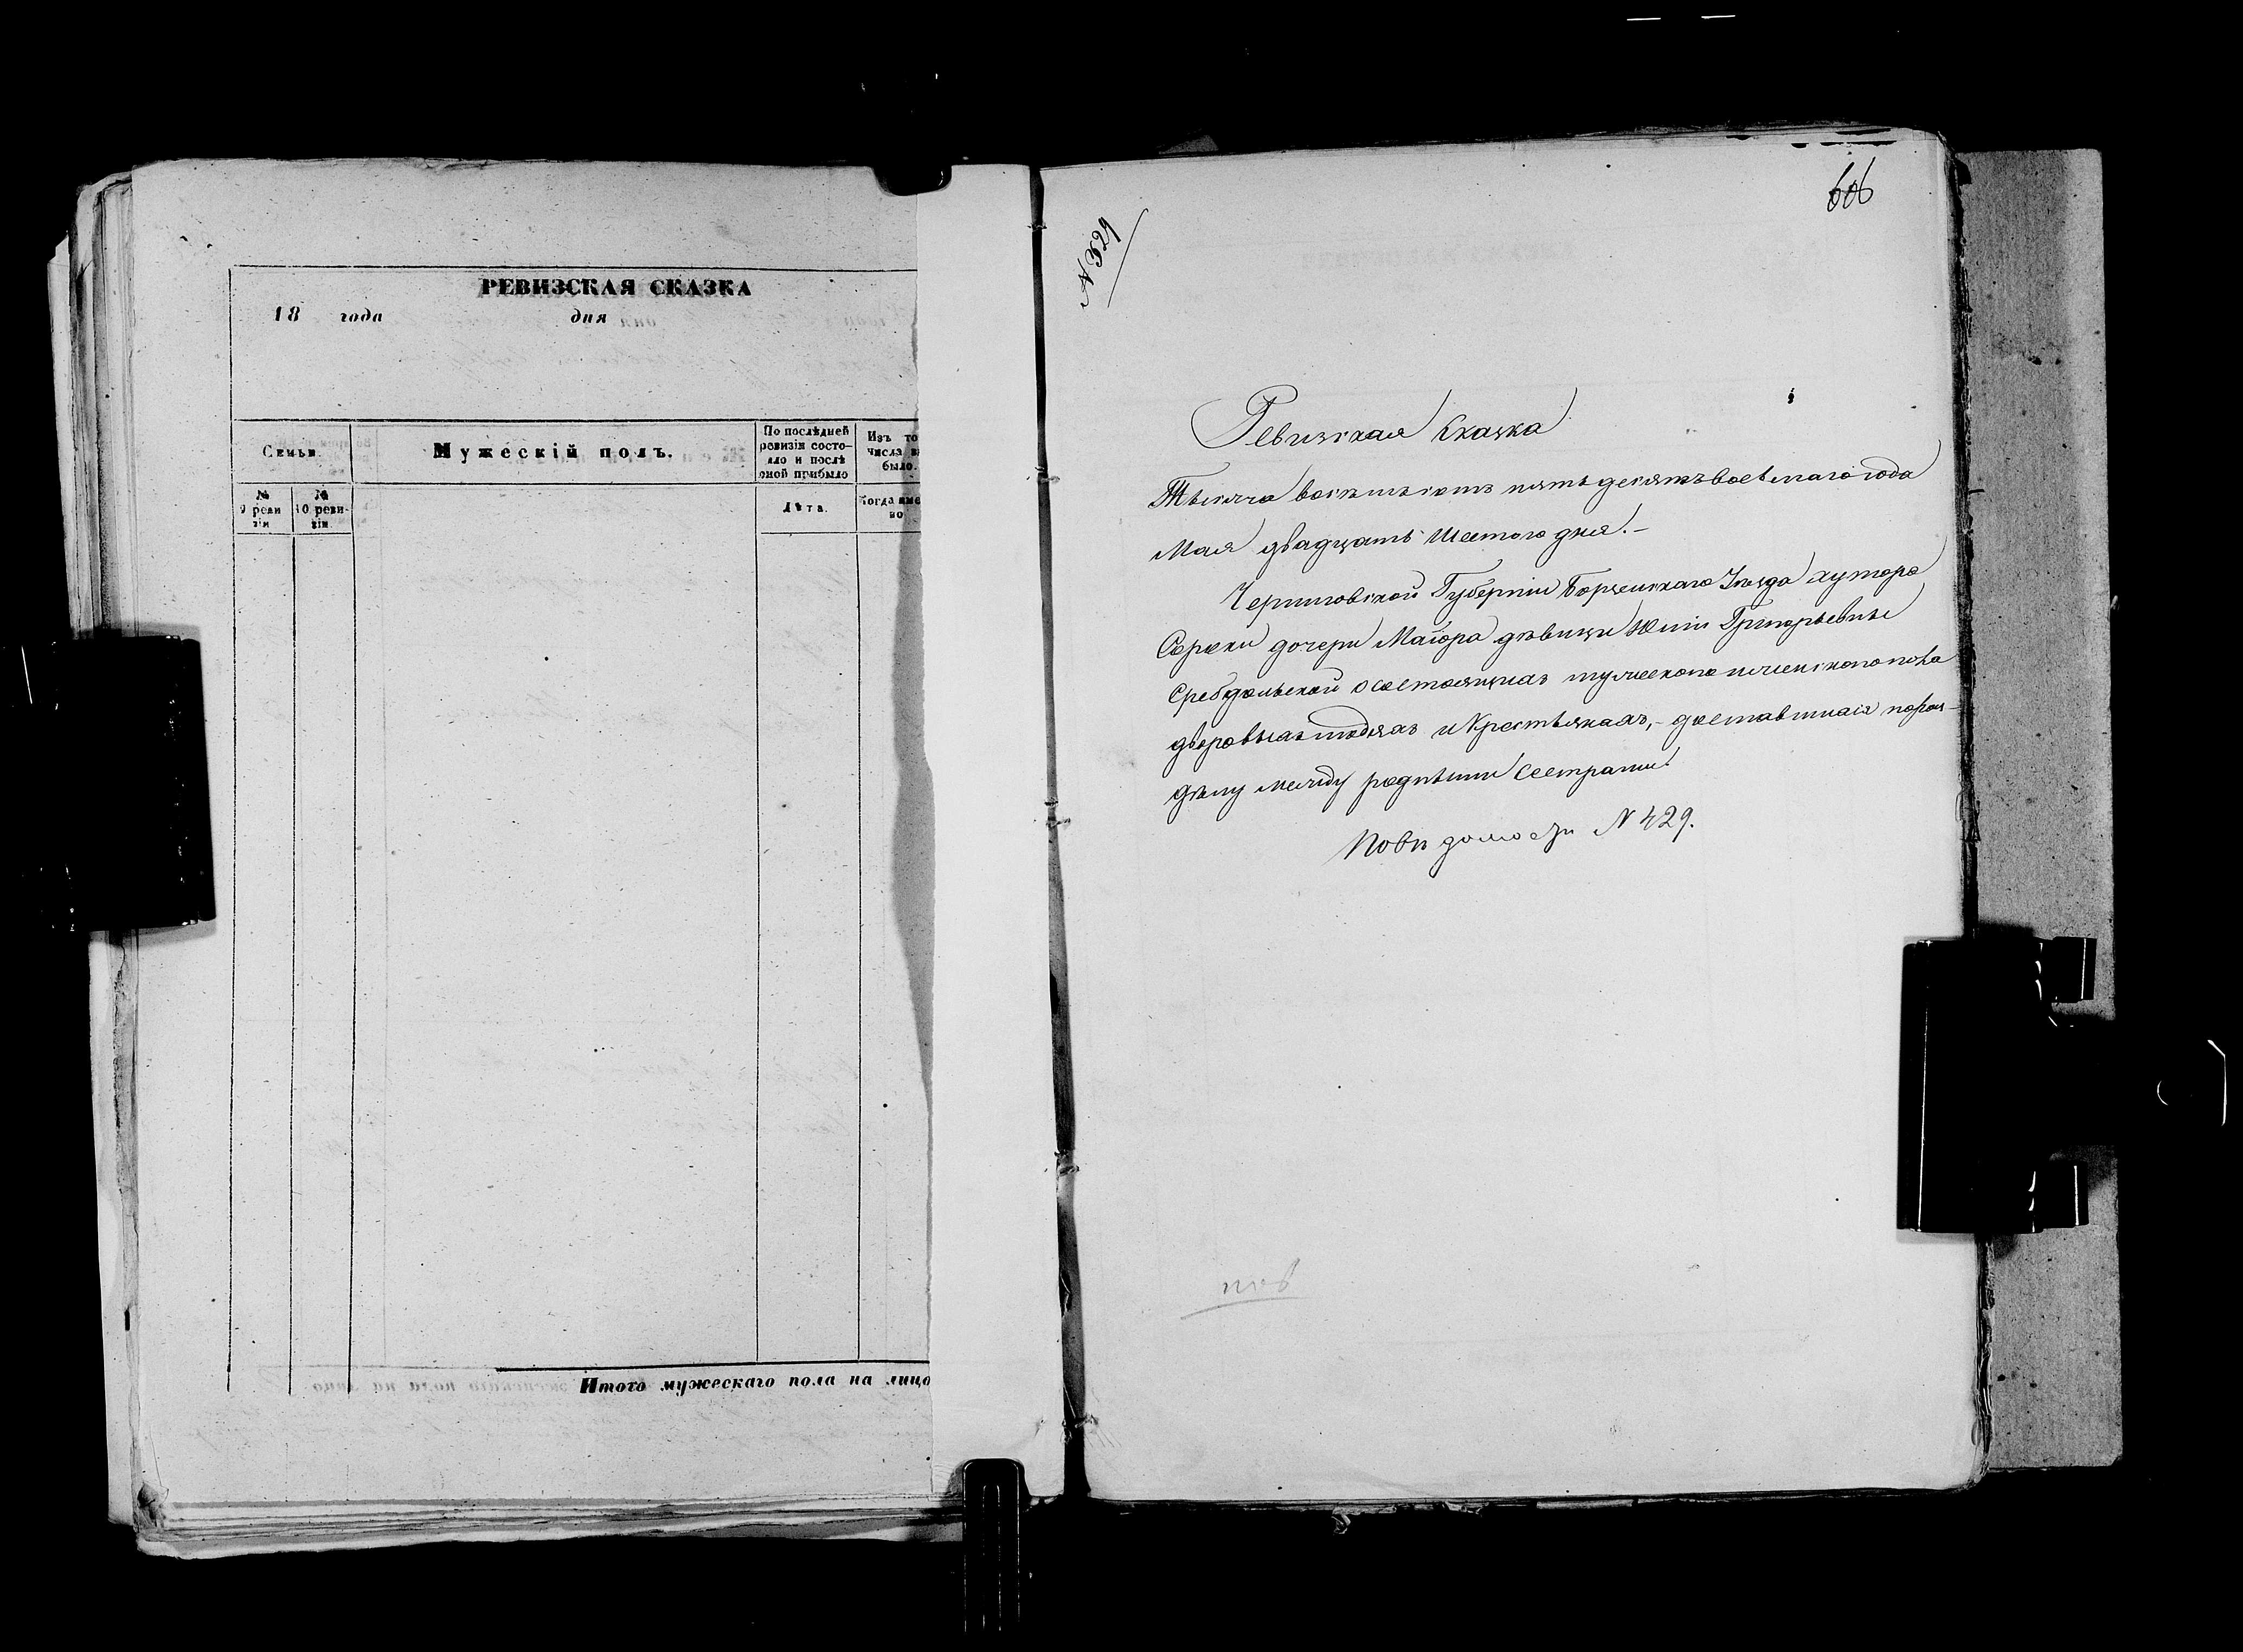 РЕВИЗСКАЯ СКАЗКА
18 года дня
Семьи.
Мужескій полъ.
По послѣдней ревизіи состо-
яло и послѣ
оной прибыло
Изъ то
числа вы
было.
№
9 реви
зіи
№
10 реви-
зіи
Лѣта.
Когда име
но
Итого мужескаго пола на лицо
606
N 329
Ревизская Сказка
Тысяча восемьсотъ пятьдесятъ восьмаго года
Мая двадцать шестого дня.-
Черниговской Губерніи Борзенскаго Уезда хутора
Сороки дочери Маіора дѣвицы Юліи Григорьевны
Среб состоящихъ мужескаго и женскаго пола
дворовыхъ людяхъ и Крестьянахъ, - доставшихся по раз-
дѣлу между родными Сестрами
По вѣдомости N 429.